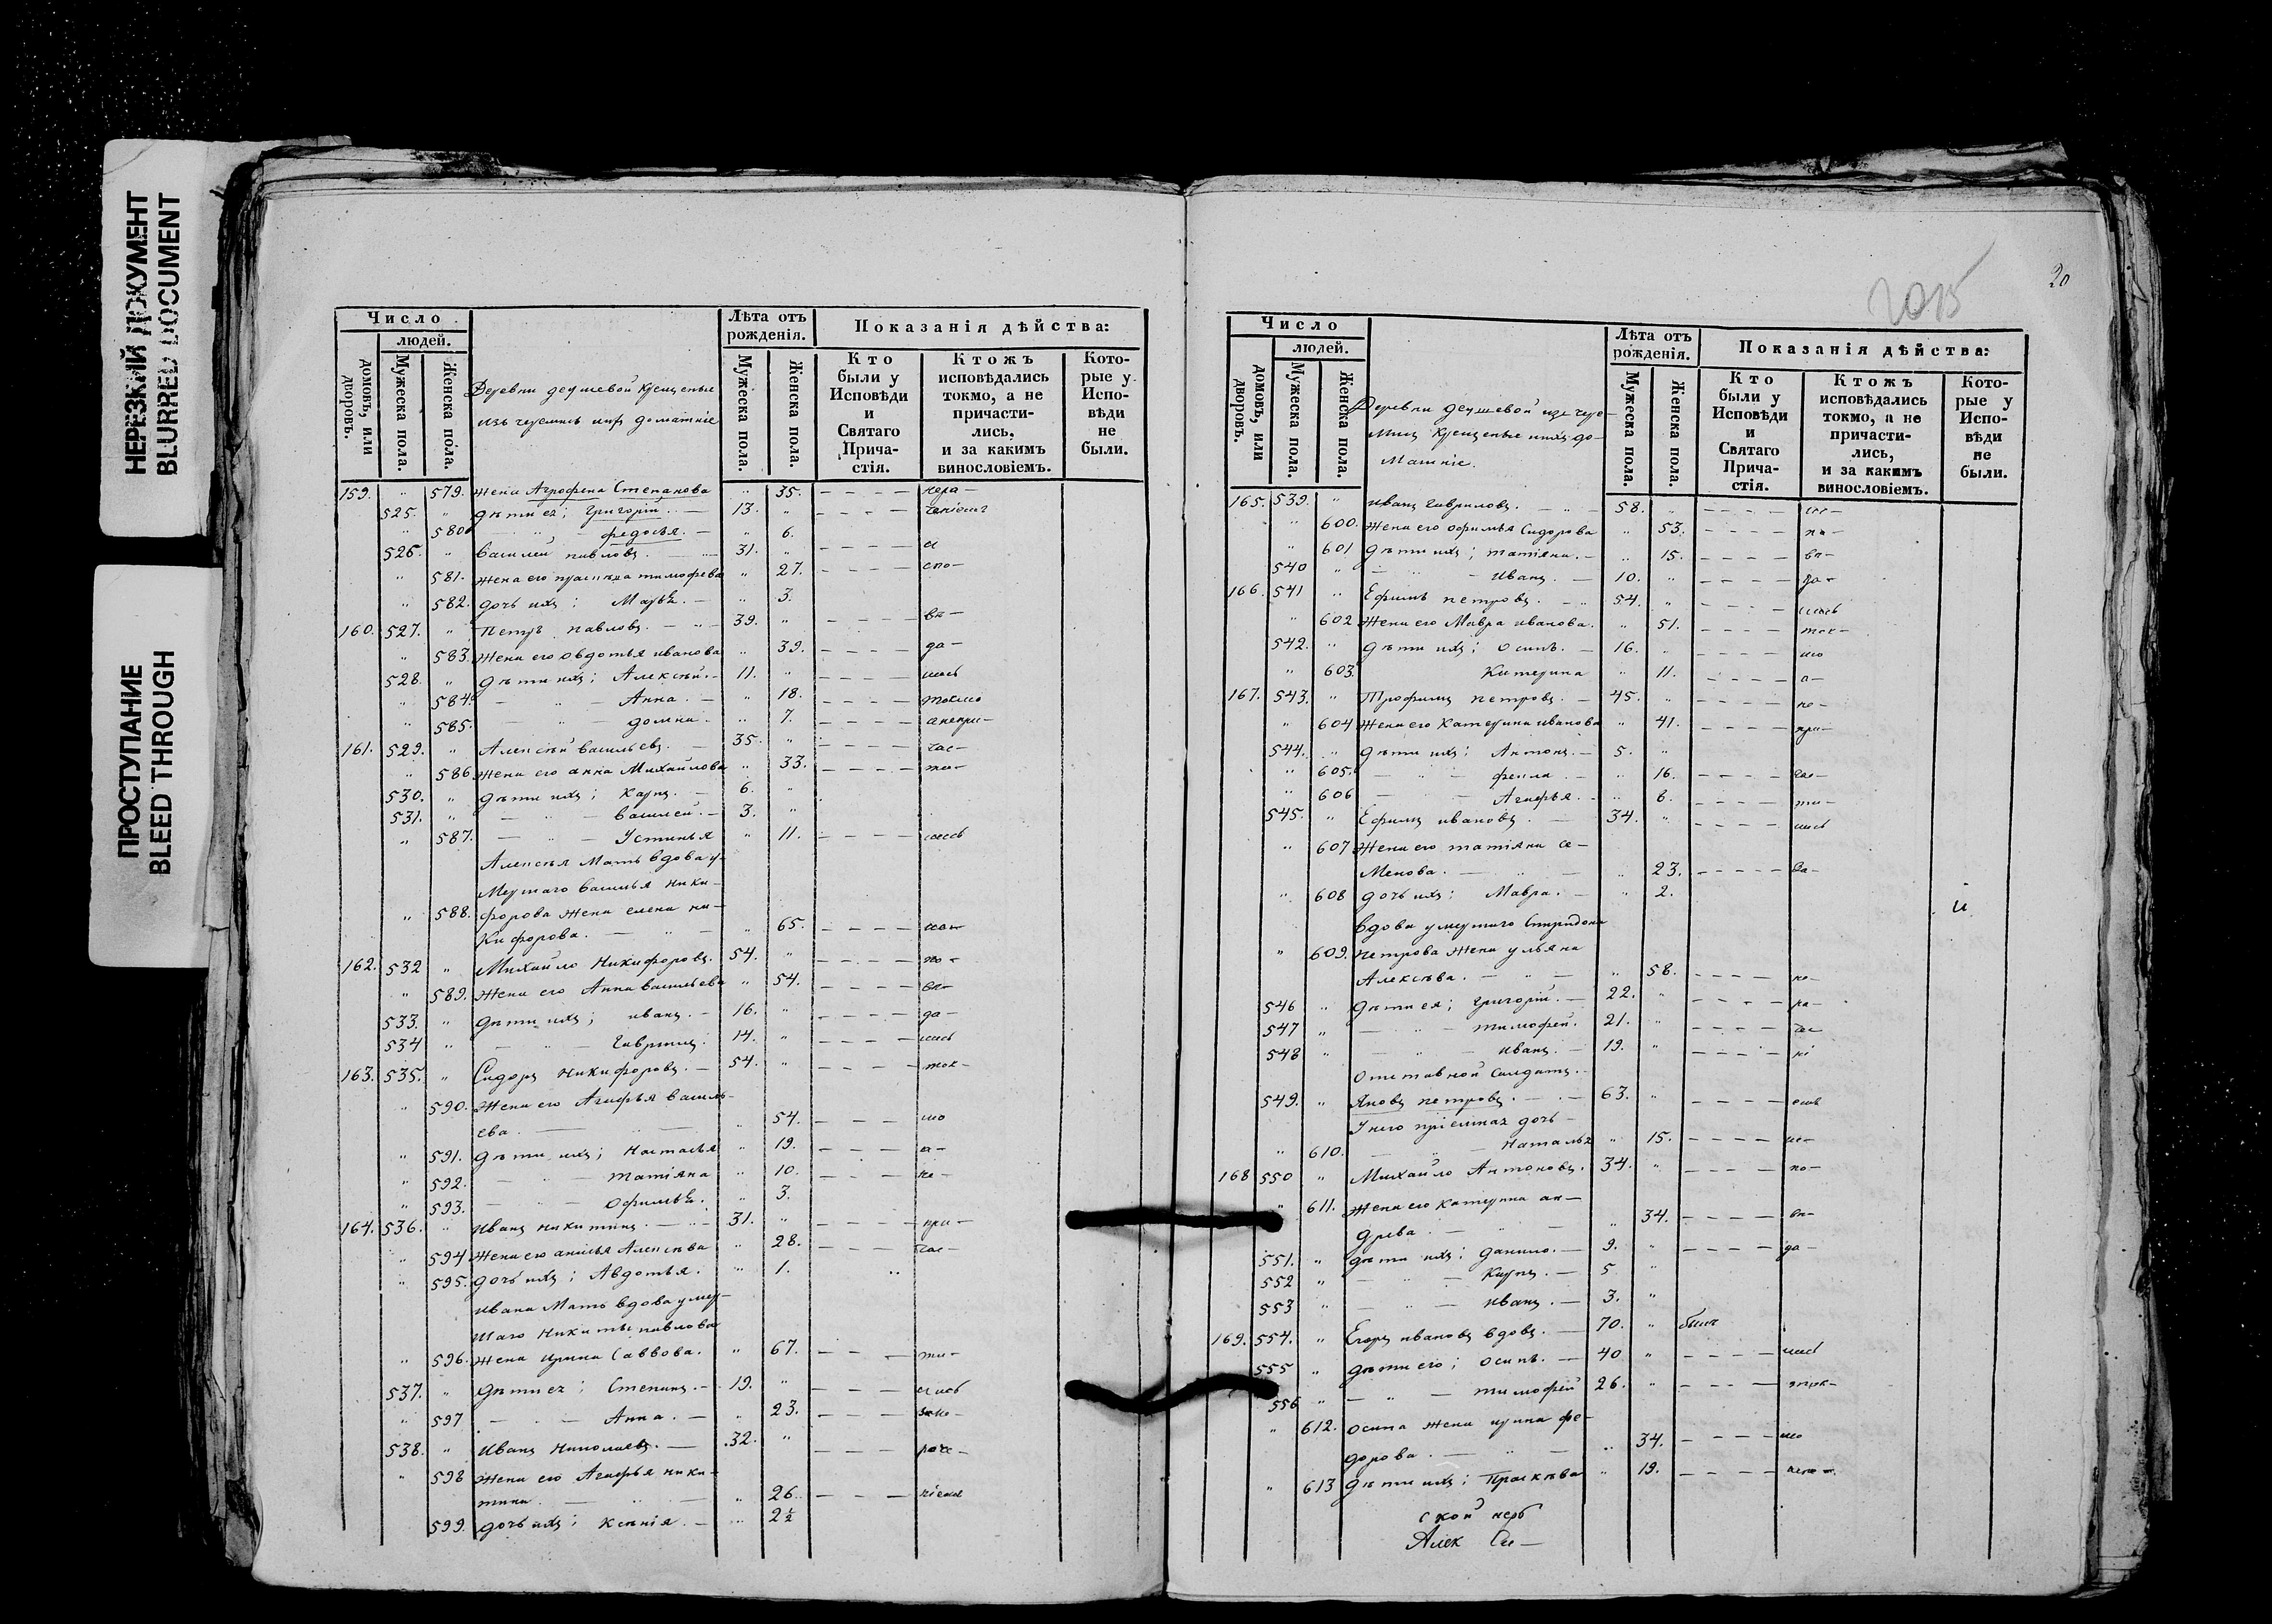 НЕРЕЗКИЙ ДОКУМЕНТ
BLURRED DOCUMENT
ПРОСТУПАНИЕ
BLEED THROUGH
Число
людей.
домовъ, или дворовъ.
Мужеска пола.
Женска пола.
Лѣта отъ рожденія.
Мужеска пола.
Женска пола.
Показанія дѣйства:
Кто были у Исповѣди и Святаго Прича-стія.
Ктожъ исповѣдались токмо, а не причасти-лись, и за какимъ винословіемъ.
Кото-рые у Испо-вѣди не были.
Деревни деушевой крещеные
изъ черемисъ домашніе
159. " 579. жена Агрофена Степанова " 35. – – – –
525. " дѣти ея; Григорій. — 13. " – – – –
" 580 — " — федосья. — " 6.
526. " Василей павловъ. — 31. " – – – –
" 581. жена его тимофева " 27. – – – – спо –
" 582. дочь ихъ; Марья. — " 3.
160. 527. " Петръ павловъ. — " — 39. " – – – – вѣ –
" 583. жена его овдотья иванова " 39. – – – – да –
528. " дѣти ихъ; Алексѣй. — 11. " – – – – лись
" 584. — " — Анна. — " 18. – – – – токмо
" 585. — " — домна. " 7. – – – – анепри –
161. 529. " Алексѣй васильевъ. — 35. " – – – – час –
" 586 жена его анна Михайлова " 33. – – – – ти –
530. " дѣти ихъ; Карпъ. — 6. "
531. " — " — василей. — 3. "
" 587. — " — Устинья " 11. – – – – лись
Алексѣя Мать вдова у-
Мершаго василья ники –
" 588. форова жена елена ни –
Кифорова. — " — " 65. – – – –
162. 532 " Михайло Никифоровъ. 54. " – – – –
" 589. жена его Анна васильева " 54. – – – – вѣ –
533. " дѣти ихъ; иванъ. — 16. " – – – – да –
534 " — " — Гаврилъ. 14. " – – – – лись
163. 535. " Сидоръ Никифоровъ. — 54. " – – – – ток –
" 590. жена его Агафья василь-
ева. — " — " 54. – – – – мо
" 591. дѣти ихъ; Настасья " 19. – – – – а –
" 592. — " — татіяна " 10. – – – не –
" 593. — " — Офимья. " 3.
164. 536. " иванъ никитинъ. — " — 31. " – – – – при –
" 594 жена его Алексѣва " 28. – – – час –
" 595. дочь ихъ; Авдотья. " 1.
ивана Мать вдова умер –
шаго Никиты павлова
" 596. жена ирина Саввова. " 67. – – – ти –
537. " дѣти ея; Степанъ. — 19. " – – – лись
" 597 — " — Анна. — " 23. – – –
538. " иванъ Николаевъ. — 32. " – – –
" 598 жена его Агафья ники –
тина. — " — " 26. – – –
599. дочь ихъ; Ксѣнія. — " 2½
2015
20
Число
людей.
домовъ, или дворовъ.
Мужеска пола.
Женска пола.
Лѣта отъ рожденія.
Мужеска пола.
Женска пола.
Показанія дѣйства:
Кто были у Исповѣди и Святаго Прича-стія.
Ктожъ исповѣдались токмо, а не причасти-лись, и за какимъ винословіемъ.
Кото-рые у Испо-вѣди не были.
Деревни деушевой изъ чере –
мисъ крещеные до –
машніе.
165. 539. " иванъ Гавриловъ. — " — 58. " – – – –
" 600. жена его офимья Сидорова " 53. – – – –
" 601 дѣти ихъ; татіяна. — " 15. – – – – вѣ –
540 " — " — иванъ. — 10. " – – – – да –
166. 541 " Ефимъ петровъ. — " 54. " – – – – лись
" 602 жена его Мавра иванова. " 51. – – – – ток –
542. " дѣти ихъ; осипъ. — 16. " – – – – мо
" 603. Катерина " 11. – – – – а –
167. 543. " Трофимъ петровъ. — 45. " – – – – не –
" 604 жена его Катерина иванова " 41. – – – – при –
544. " дѣти ихъ; Антонъ. — 5. "
" 605. — " — фекла. — " 16. – – – – час –
" 606 — Агафья. — " 8. – – – – ти –
545. " Ефимъ ивановъ. — 34. " – – – – лись
" 607 жена его татіяна се –
Менова. — " — " 23. – – – – –
" 608 дочь ихъ; Мавра. — " 2.
и
вдова умершаго Спиридона
" 609. петрова жена ульяна
Алексѣва. — " — " 58. – – – –
546 " дѣти ея; Григорій. — 22. " – – – –
547 " — " — тимофей. 21. " – – – –
548 " — " — иванъ. — 19. " – – – –
Отставной Салдатъ. –
549. " Яковъ петровъ. — . — 63. " – – – –
У него дочь –
" 610. — " — Наталья " 15. – – – –
168 550 " Михайло Антоновъ. 34. " – – – –
" 611. жена его Катерина ан –
древа. — " — " 34. – – – – вѣ –
551. " дѣти ихъ; данило. — 9. " – – – – да –
552 " — " — Карпъ. — 5 "
553 " — " — иванъ. — 3. "
169. 554. " Егоръ ивановъ вдовъ. — 70. " былъ
555 " дѣти его; осипъ. — 40 " – – – – лись
556 " — " — тимофей 26. " – – – —
" 612. осипа жена ирина фе –
дорова. — " — " 34. – – – – мо
" 613 дѣти ихъ; Прасковья " 19. – – – –
Алек